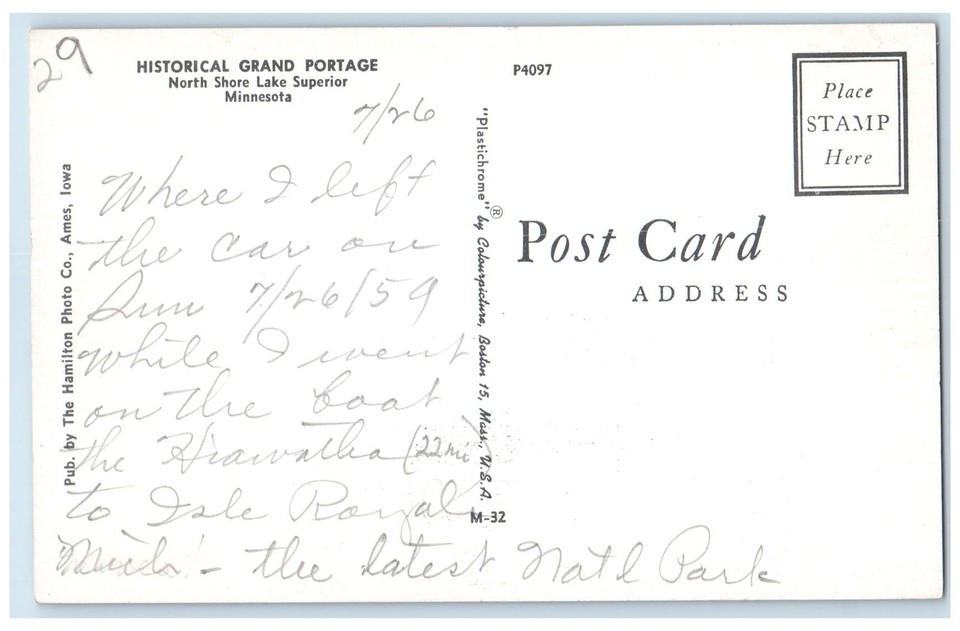 29
HISTORICAL GRAND PORTAGE
North Shore Lake Superior
Minnesota
7/26
Where I left
the car on
Sun 7/26/59
while I went
on the boat
the Hiawatha (22 mi)
to Isle Royal
Mich - the latest Nat'l Park
Pub. by The Hamilton Photo Co., Ames, Iowa
"Plastichrome"® by Colourpicture, Boston 15, Mass., U.S.A.
M-32
P4097
Place
STAMP
Here
Post Card
ADDRESS